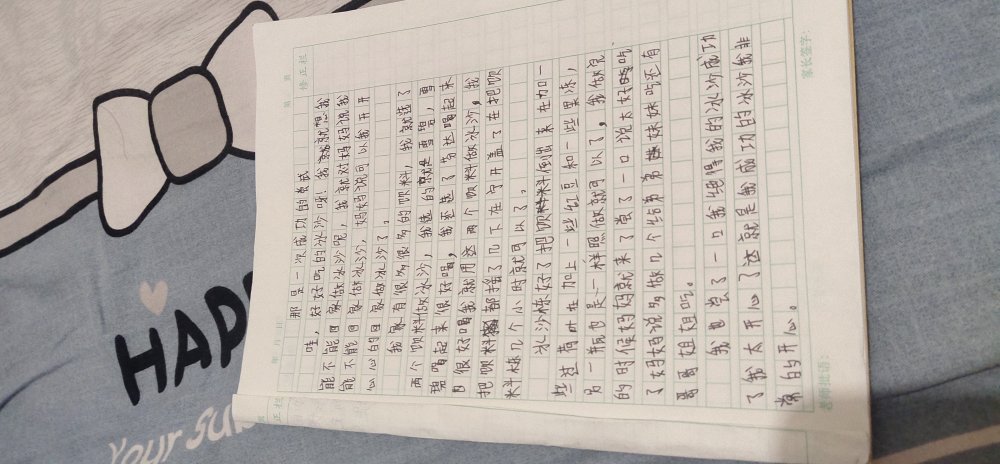 第 页
修正栏
年 月 日
那是一次成功的尝试
哇，好好吃的冰沙呀！我就就想我
能不能回家做冰沙呢，我就对妈妈说我
能不能回家做冰沙，妈妈说可以我开开
心心的回家做冰沙了。
我家有很多很多的饮料，我就选了
两个饮料做冰沙，我选的就是雪碧，雪
碧喝起来很好喝，我还选了芬达喝起来
也很好喝我就用这两个饮料做冰沙，我
把饮料都摇了几下在宁开盖了在把饮
料冻几个小时就可以了。
冰沙冻好了把饮料倒出来在加一
些荷叶在加上一些红豆和一些果冻，
另一瓶也是一样照做就可以了，我做完
的时候妈妈就来了尝了一口说太好吃
了妈妈说多做几个给弟弟妹妹吃还有
哥哥姐姐吃。
我也尝了一口我觉得我的冰沙成功
了我太开心了这就是我成功的冰沙我非
常的开心。
老师批语：
家长签字：
正栏
HAP
Your sub